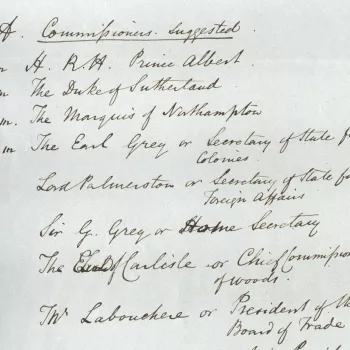 A. Commissioners Suggested.
m H. R. H. Prince Albert.
m The Duke of Sutherland
m. The Marquis of Northampton
m The Earl Grey or Secretary of State fo
Colonies
Lord Palmerston or Secretary of State fo
Foreign Affairs
Sir G. Grey or Home Secretary
The Earl of Carlisle or Chief Commission
of woods.
Mr. Labouchere or President of the
Board of Trade